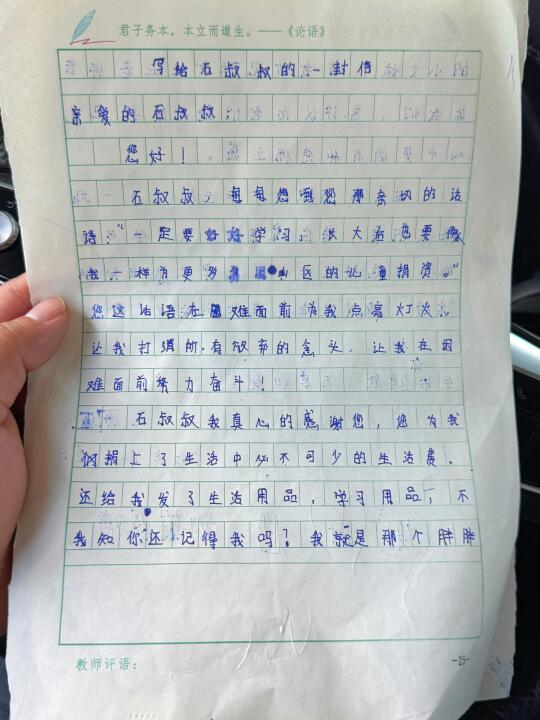 君子务本，本立而道生。——《论语》
写给石叔叔的一封信
亲爱的石叔叔：
您好！
石叔叔，每每想到您那亲切的话
语："一定要好好学习，长大后也要像
我一样为更多贫困山区的儿童捐资。"
您这话语在困难面前为我点亮灯火，
让我打消所有放弃的念头，让我在困
难面前努力奋斗！
石叔叔我真心的感谢您，您为我
们捐上了生活中必不可少的生活费，
还给我发了生活用品，学习用品，不
我知你还记得我吗？我就是那个胖胖
教师评语：
-25-